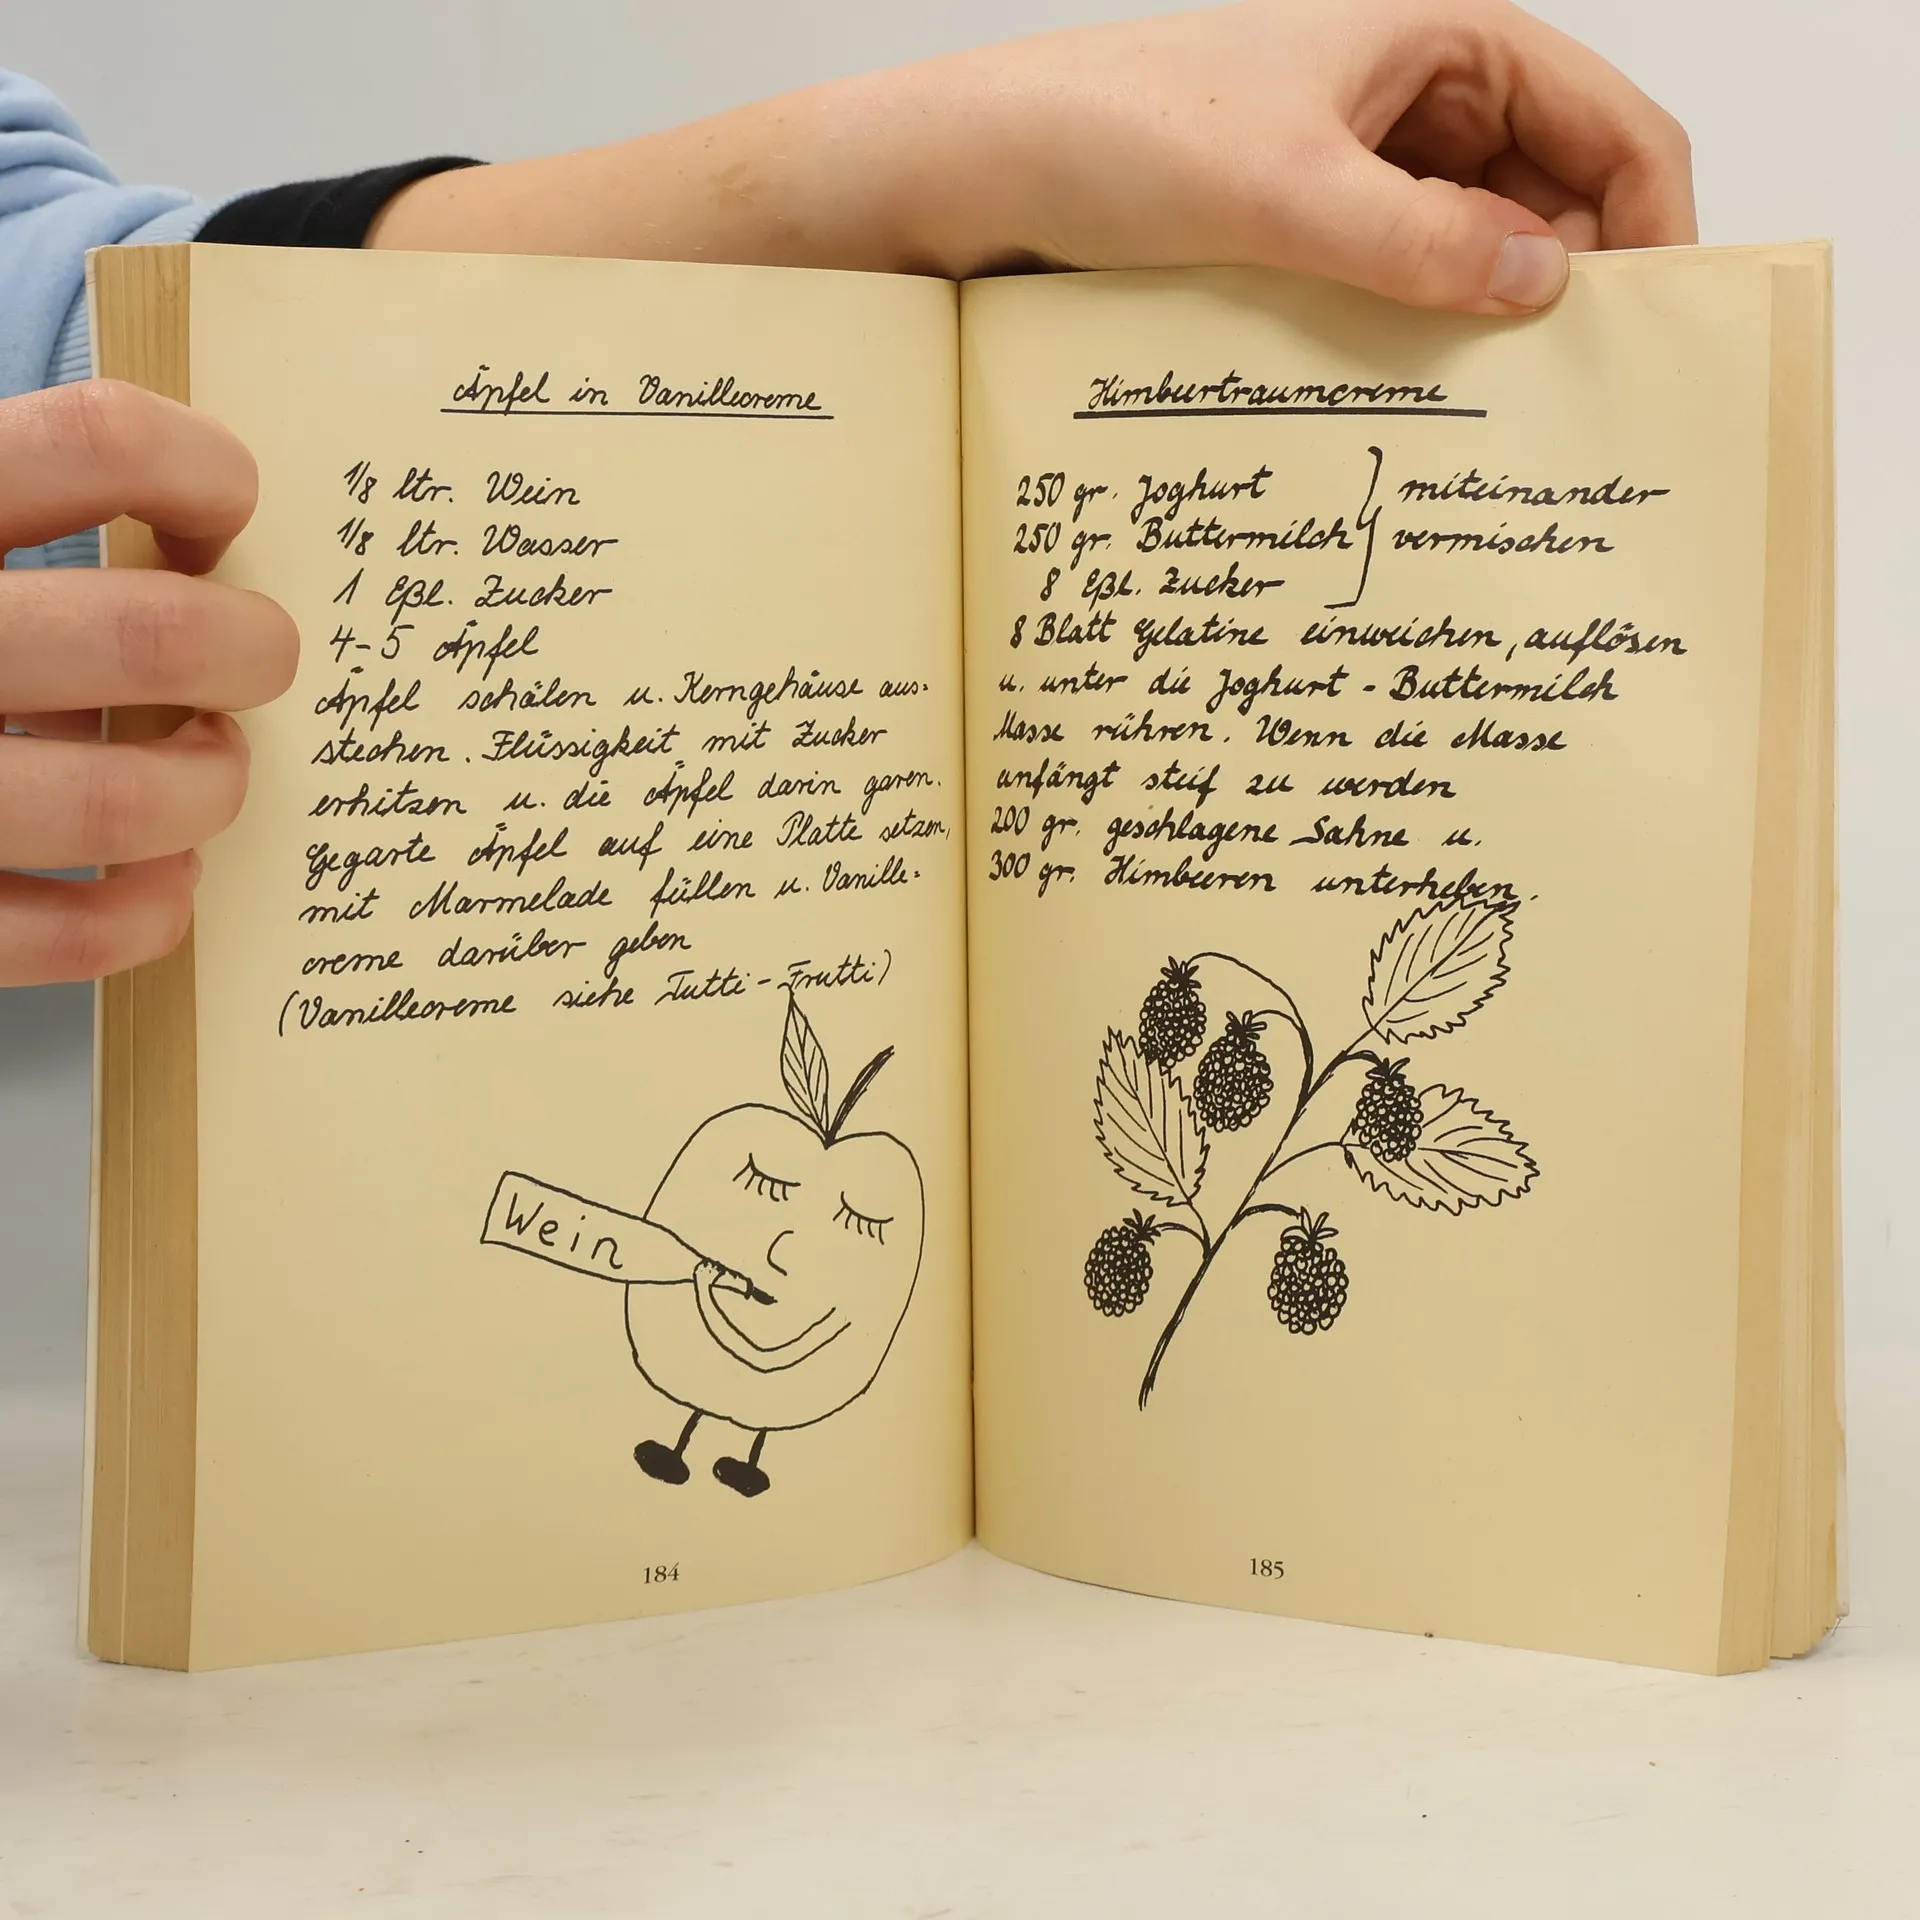 Äpfel in Vanillecreme
1/8 ltr. Wein
1/8 ltr. Wasser
1 Eßl. Zucker
4-5 Äpfel
Äpfel schälen u. Kerngehäuse aus=
stechen. Flüssigkeit mit Zucker
erhitzen u. die Äpfel darin garen.
Gegarte Äpfel auf eine Platte setzen,
mit Marmelade füllen u. Vanille=
creme darüber geben
(Vanillecreme siehe Tutti-Frutti)
Wein
184
Himbeertraumcreme
250 gr. Joghurt } miteinander
250 gr. Buttermilch } vermischen
8 Eßl. Zucker
8 Blatt Gelatine einweichen, auflösen
u. unter die Joghurt-Buttermilch
Masse rühren. Wenn die Masse
anfängt steif zu werden
200 gr. geschlagene Sahne u.
300 gr. Himbeeren unterheben.
185